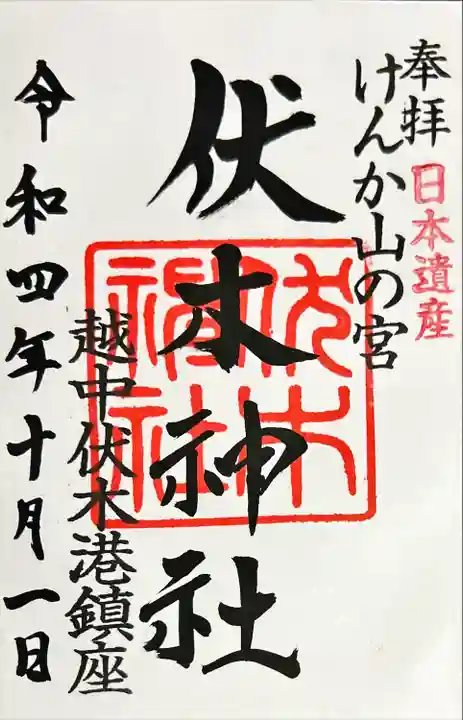 奉拝
日本遺産
けんか山の宮
伏木神社
伏木神社
越中伏木港鎮座
令和四年十月一日